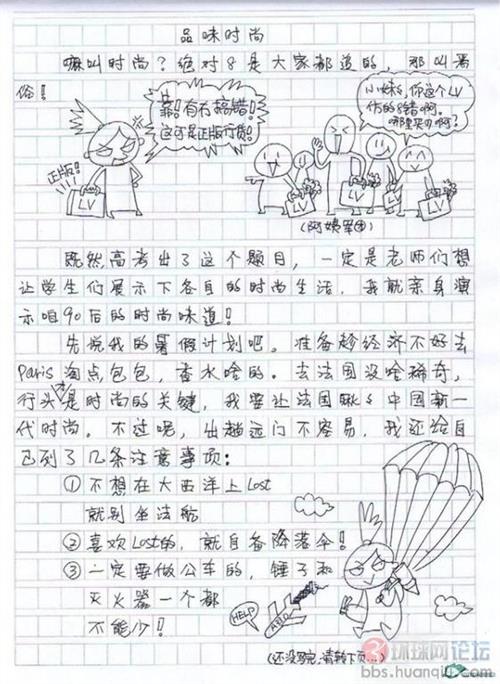 品味时尚
嘛叫时尚？绝对8是大家都逗的，那叫恶
俗！
靠！有冇搞错！
这可是正版行货！
小妹s，你这个LV
仿的8错啊。
哪里买D啊？
正版！
LV
LV
LV
LV
(阿姨军团)
既然高考出了这个题目，一定是老师们想
让学生们展示下各自的时尚生活，我就亲身演
示咱90后的时尚味道！
先说我的暑假计划吧。准备趁经济不好去
Paris淘点包包，香水啥的。去法国没啥稀奇，
行头才是时尚的关键，我要让法国瞅s中国新一
代时尚。不过呢，出趟远门不容易，我还给自
己列了几条注意事项：
①不想在大西洋上Lost
就别坐法航
②喜欢Lost的，就自备降落伞！
③一定要做公车的，锤子和
灭火器一个都
不能少！
HELP
HELP
(还没写完，请转下页...)
环球网论坛
bbs.huanqiu.com